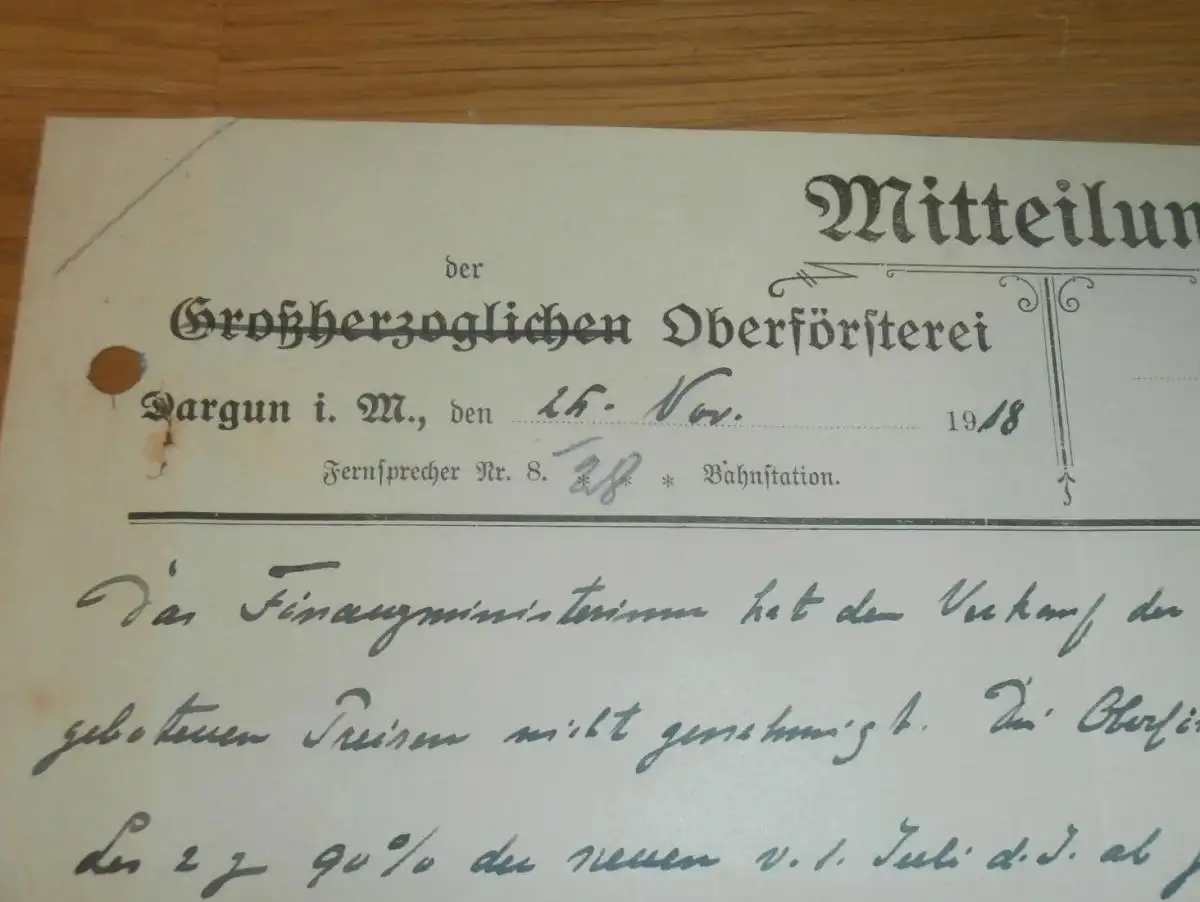 Mitteilun
der
Großherzoglichen Oberförsterei
Dargun i. M., den 25. Nov. 1918
Fernsprecher Nr. 8. 28 * Bahnstation.
Das Finanzministerium hat den Verkauf der
gebotenen Preisen nicht genehmigt. Die Oberfö
90% der neuen v. 1. Juli d. J. ab